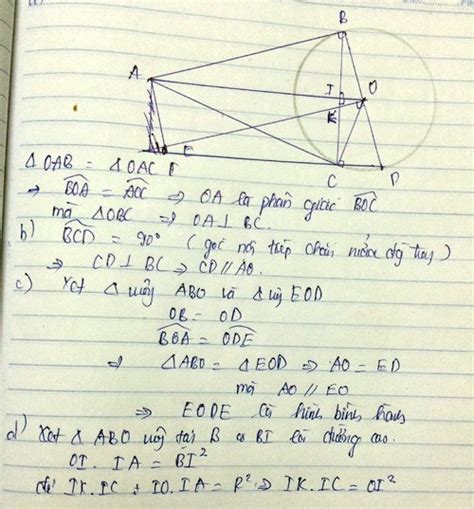 B
A
I
O
K
E
C
D
△OAB = △OAC
⇒ BOA = AOC ⇒ OA là phân giác BOC
mà △OBC ⇒ OA ⊥ BC.
b) BCD = 90° (góc nội tiếp chắn nửa đg tròn)
⇒ CD ⊥ BC ⇒ CD // AO.
c) Xét △ vuông ABO và △ vg EOD
OB = OD
BOA = ODE
⇒ △ABO = △EOD ⇒ AO = ED
mà AO // EO
⇒ EODE là hình bình hành
d) Xét △ ABO vuông tại B có BI là đường cao.
OI. IA = BI²
IK.IC + IO.IA = R² ⇒ IK.IC = OI²